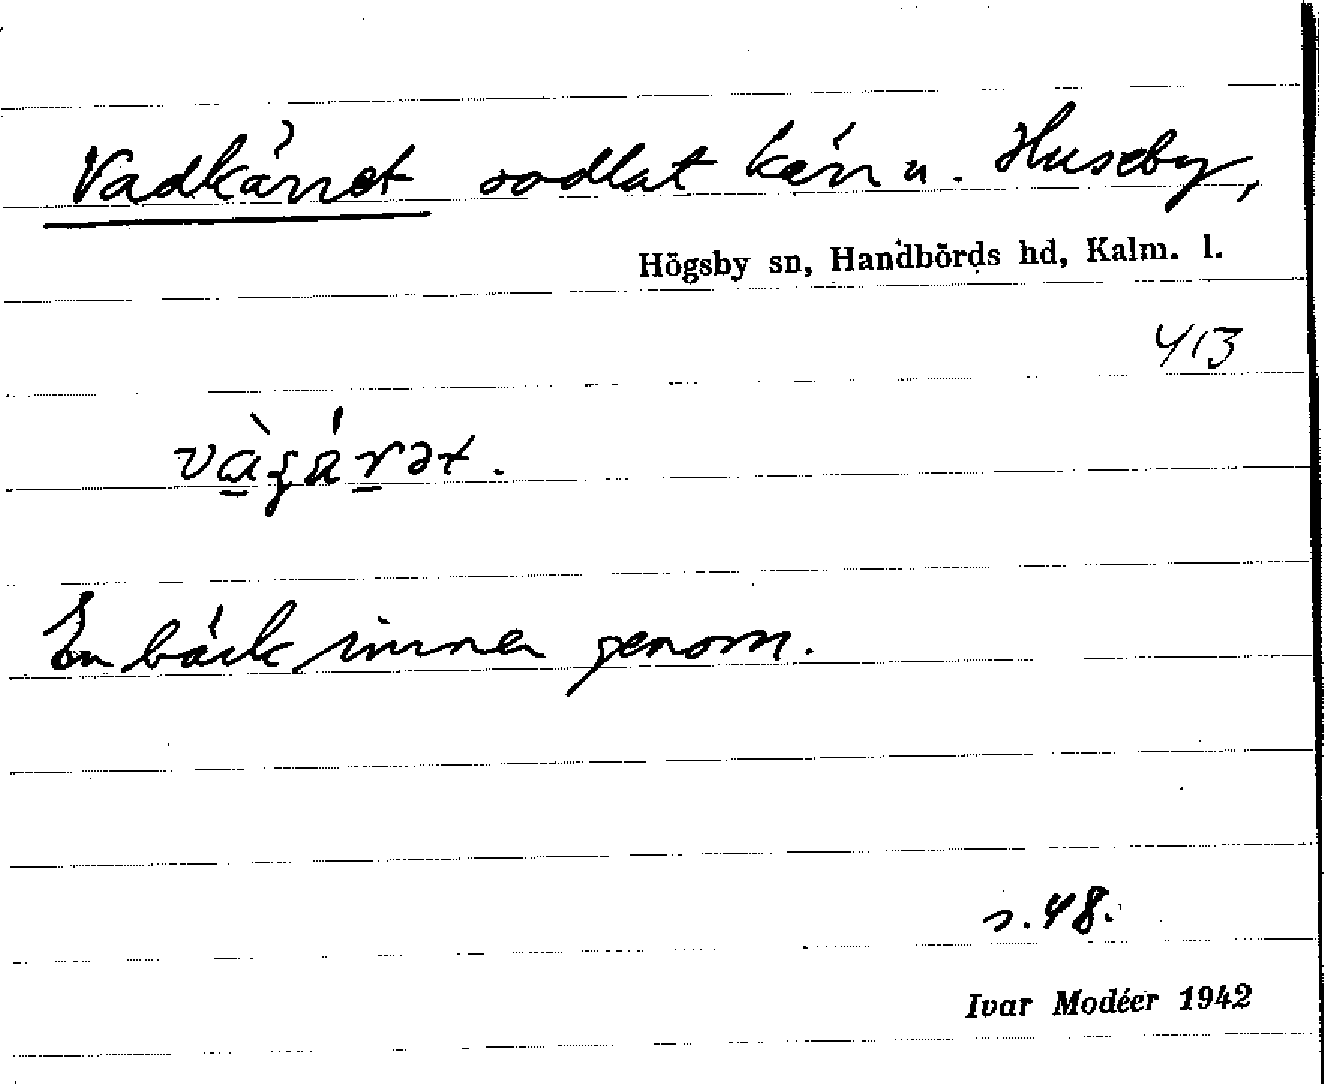 Vadkärret sodlat kärr u. Huseby,
Högsby sn, Handbörds hd, Kalm. l.
413
En bäck rinner genom.
s. 48.
Ivar Modéer 1942